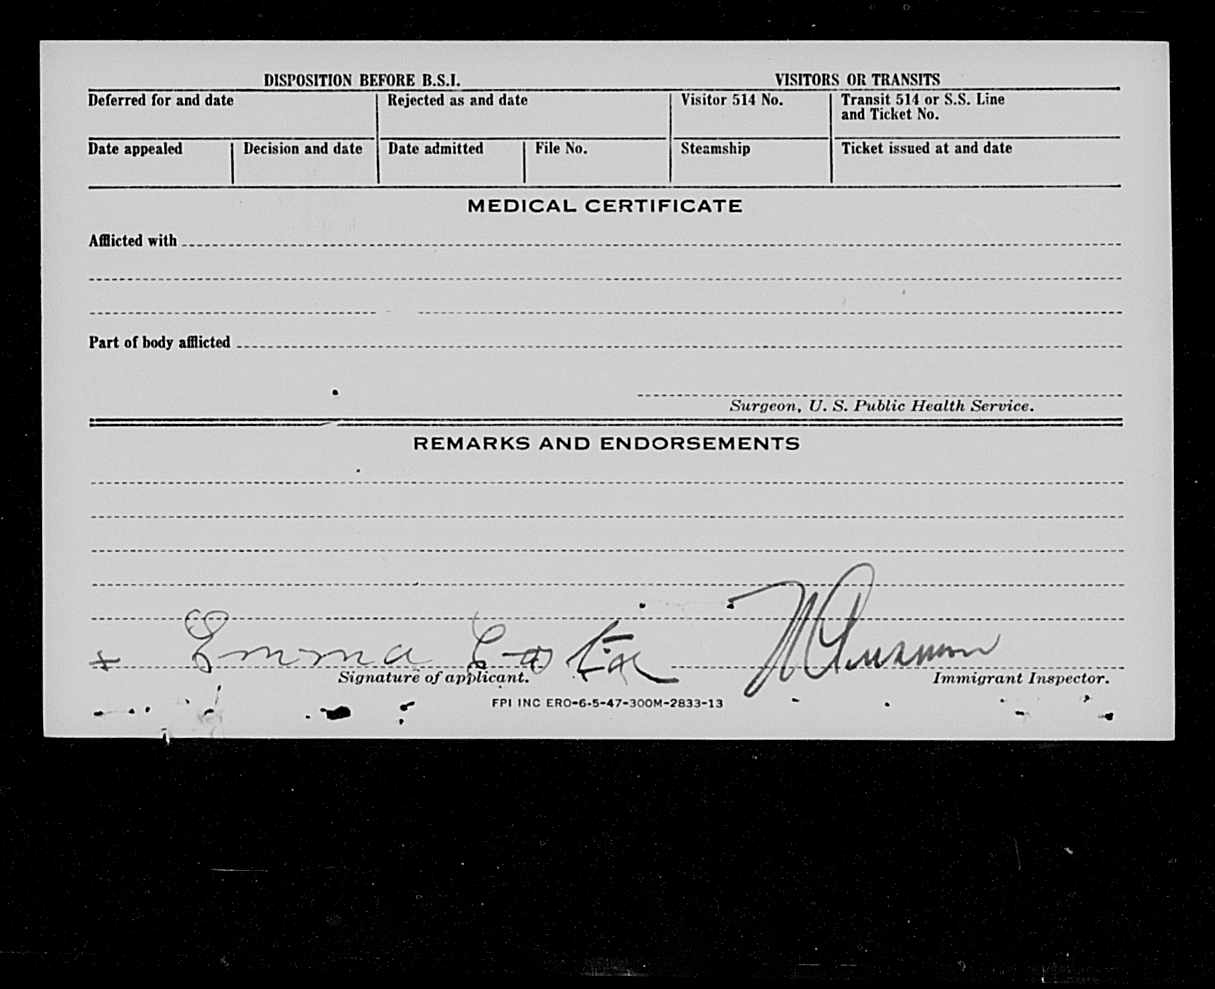 DISPOSITION BEFORE B.S.I. VISITORS OR TRANSITS
Deferred for and date Rejected as and date Visitor 514 No. Transit 514 or S.S. Line
and Ticket No.
Date appealed Decision and date Date admitted File No. Steamship Ticket issued at and date
MEDICAL CERTIFICATE
Afflicted with
Part of body afflicted
Surgeon, U. S. Public Health Service.
REMARKS AND ENDORSEMENTS
x Emma Costa
Signature of applicant. Immigrant Inspector.
FPI INC ERO-6-5-47-300M-2833-13